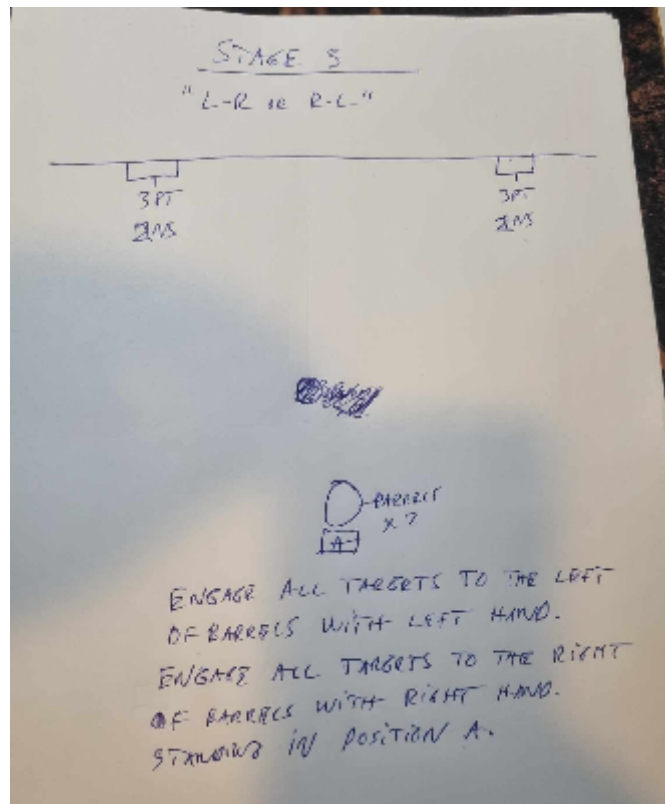 STAGE 3
"L-R or R-L"
3PT
3PT
NS
NS
BARRELS
A
ENGAGE ALL TARGETS TO THE LEFT
OF BARRELS WITH LEFT HAND.
ENGAGE ALL TARGETS TO THE RIGHT
OF BARRELS WITH RIGHT HAND.
STANDING IN POSITION A.